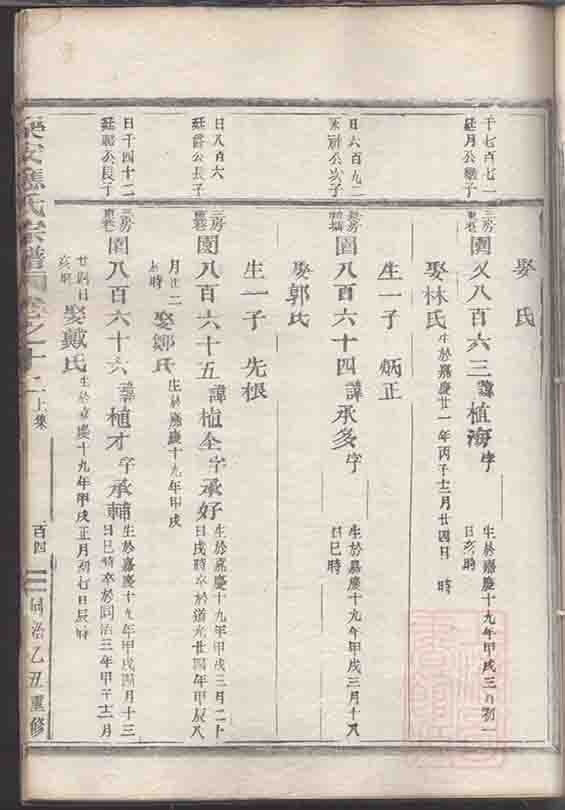 娶 氏
千七百七一
廷月公幾子
三房
東巷
園又八百六三諱植海字
生於嘉慶十九年甲戌三月初一
日亥時
娶林氏生於嘉慶廿一年丙子十二月廿四日 時
生一子 炳正
日六百九二
公次子
園八百六十四諱承多字
生於嘉慶十九年甲戌三月十八
日巳時
娶郭氏
生一子 先根
日八百六
廷爵公長子
三房
東巷
園八百六十五諱植全字承好
生於嘉慶十九年甲戌三月二十
日戌時卒於道光廿四年甲辰八
月 二
時
娶鄒氏生於嘉慶十九年甲戌
日千四十二
廷 公長子
三房
東巷
園八百六十六諱植才字承輔
生於嘉慶十九年甲戌四月十三
日巳時卒於同治三年甲子十二月
廿四日
亥時
娶戴氏生於嘉慶十九年甲戌正月初七日辰時
樂安 氏宗譜 卷之十二上集 百四 同治乙丑重修